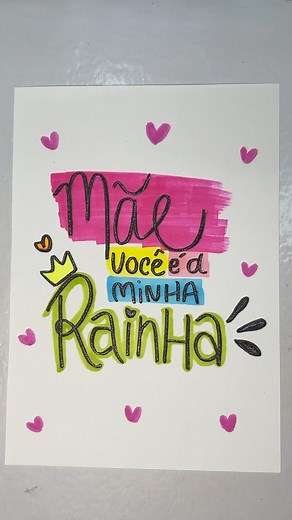 Mãe
você é a
minha
Rainha